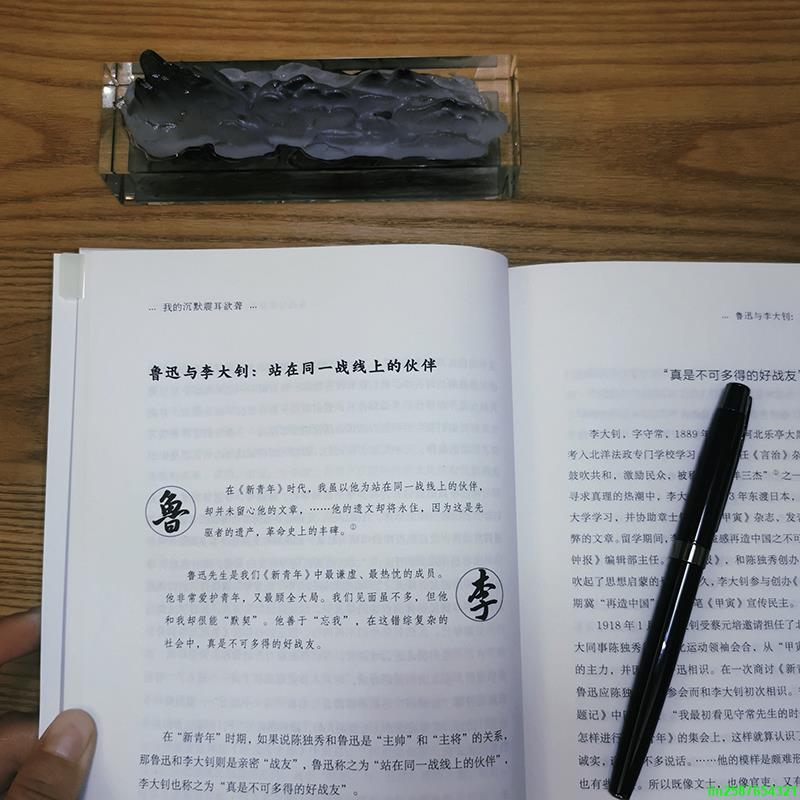 ... 我的沉默震耳欲聋 ...
鲁迅与李大钊：站在同一战线上的伙伴
鲁
在《新青年》时代，我虽以他为站在同一战线上的伙伴，
却并未留心他的文章，……他的遗文却将永住，因为这是先
驱者的遗产，革命史上的丰碑。①
鲁迅先生是我们《新青年》中最谦虚、最热忱的成员。
他非常爱护青年，又最顾全大局。我们见面虽不多，但他
和我却很能“默契”。他善于“忘我”，在这错综复杂的
社会中，真是不可多得的好战友。
李
在“新青年”时期，如果说陈独秀和鲁迅是“主帅”和“主将”的关系，
那鲁迅和李大钊则是亲密“战友”，鲁迅称之为“站在同一战线上的伙伴”，
李大钊也称之为“真是不可多得的好战友”。
... 鲁迅与李大钊：
“真是不可多得的好战友”
李大钊，字守常，1889年 河北乐亭大
考入北洋法政专门学校学习 任《言治》杂
鼓吹共和，激励民众，被称 三杰”②之一
寻求真理的热潮中，李大 3年东渡日本，
大学学习，并协助章士 《甲寅》杂志，发表
弊的文章。留学期间， 感再造中国之不可
钟报》编辑部主任。 报》，和陈独秀创办
吹起了思想启蒙的 久，李大钊参与创办《
期冀“再造中国” 笔《甲寅》宣传民主。
1918年1月 钊受蔡元培邀请担任了北
大同事陈独秀 化运动领袖会合，从“甲寅
的主力，并因 迅相识。在一次商讨《新青
鲁迅应陈独 参会而和李大钊初次相识。
题记》中 “我最初看见守常先生的时
怎样进行 年》的集会上，这样就算认识了
诚实， 不多说话。……他的模样是颇难形
也有些 所以既像文士，也像官吏，又有
m2587654321